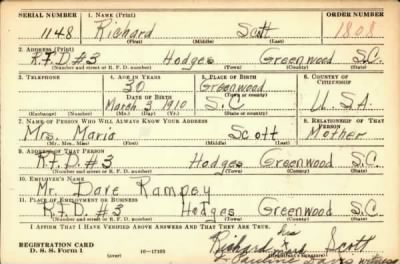 SERIAL NUMBER 1. NAME (Print) ORDER NUMBER
1148 Richard Scott 1808
(First) (Middle) (Last)
2. ADDRESS (Print)
R.F.D. #3 Hodges Greenwood S.C.
(Number and street or R. F. D. number) (Town) (County) (State)
3. TELEPHONE 4. AGE IN YEARS 5. PLACE OF BIRTH 6. COUNTRY OF CITIZENSHIP
30 Greenwood
DATE OF BIRTH (Town or county)
March 3 1910 S.C U.S.A.
(Exchange) (Number) (Mo.) (Day) (Yr.) (State or country)
7. NAME OF PERSON WHO WILL ALWAYS KNOW YOUR ADDRESS 8. RELATIONSHIP OF THAT PERSON
Mrs. Maria Scott Mother
(Mr., Mrs., Miss) (First) (Middle) (Last)
9. ADDRESS OF THAT PERSON
R.F.D. #3 Hodges Greenwood S.C.
(Number and street or R. F. D. number) (Town) (County) (State)
10. EMPLOYER'S NAME
Mr. Dave Rampey
11. PLACE OF EMPLOYMENT OR BUSINESS
R.F.D. #3 Hodges Greenwood S.C.
(Number and street or R. F. D. number) (Town) (County) (State)
I AFFIRM THAT I HAVE VERIFIED ABOVE ANSWERS AND THAT THEY ARE TRUE.
his
REGISTRATION CARD Richard Scott
D. S. S. Form 1 (over) 16—17105 mark (Registrant's signature)
witness